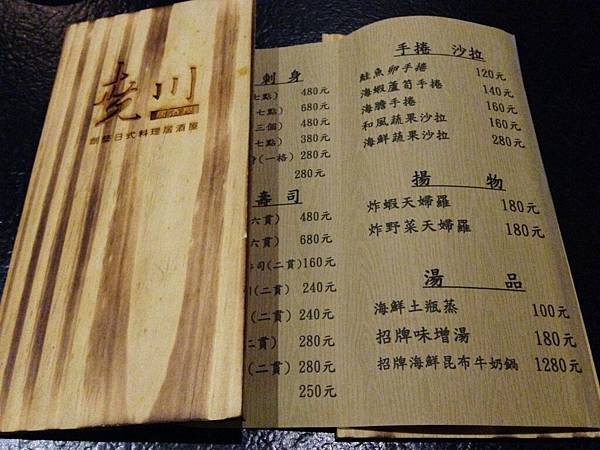 堯川
創藝日式料理居酒屋
刺身
七點) 480元
七點) 680元
三個) 480元
七點) 380元
(一格) 280元
280元
壽司
六貫) 480元
六貫) 680元
司(二貫)160元
(二貫) 240元
(二貫) 240元
二貫) 280元
(二貫) 280元
250元
手捲 沙拉
鮭魚卵手捲 120元
海蝦蘆筍手捲 140元
海膽手捲 160元
和風蔬果沙拉 160元
海鮮蔬果沙拉 280元
揚物
炸蝦天婦羅 180元
炸野菜天婦羅 180元
湯品
海鮮土瓶蒸 100元
招牌味增湯 180元
招牌海鮮昆布牛奶鍋 1280元